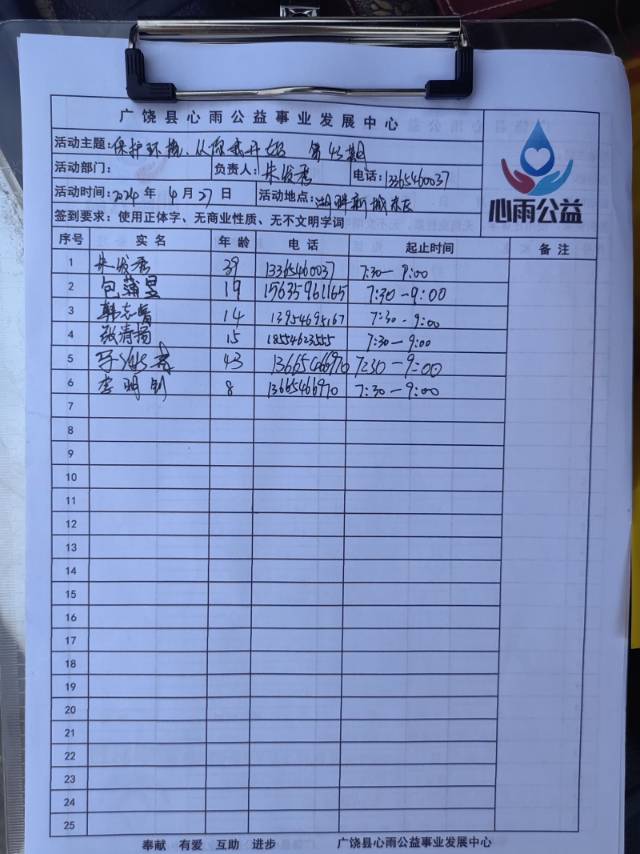 广饶县心雨公益事业发展中心
活动主题: 保护环境、从 开始 第43期
活动部门: 负责人: 朱 电话: 13365460037
活动时间: 2024年 4月 27日 活动地点: 新城东区
签到要求: 使用正体字、无商业性质、无不文明字词
心雨公益
序号 实名 年龄 电话 起止时间 备注
1 朱 39 13365460037 7:30—9:00
2 包 昱 19 15635961165 7:30-9:00
3 韩志 14 13954695167 7:30-9:00
4 张清扬 15 18554623555 7:30—9:00
5 43 13665466970 7:30—9:00
6 李明钊 8 13665466970 7:30—9:00
7
8
9
10
11
12
13
14
15
16
17
18
19
20
21
22
23
24
25
奉献 有爱 互助 进步 广饶县心雨公益事业发展中心